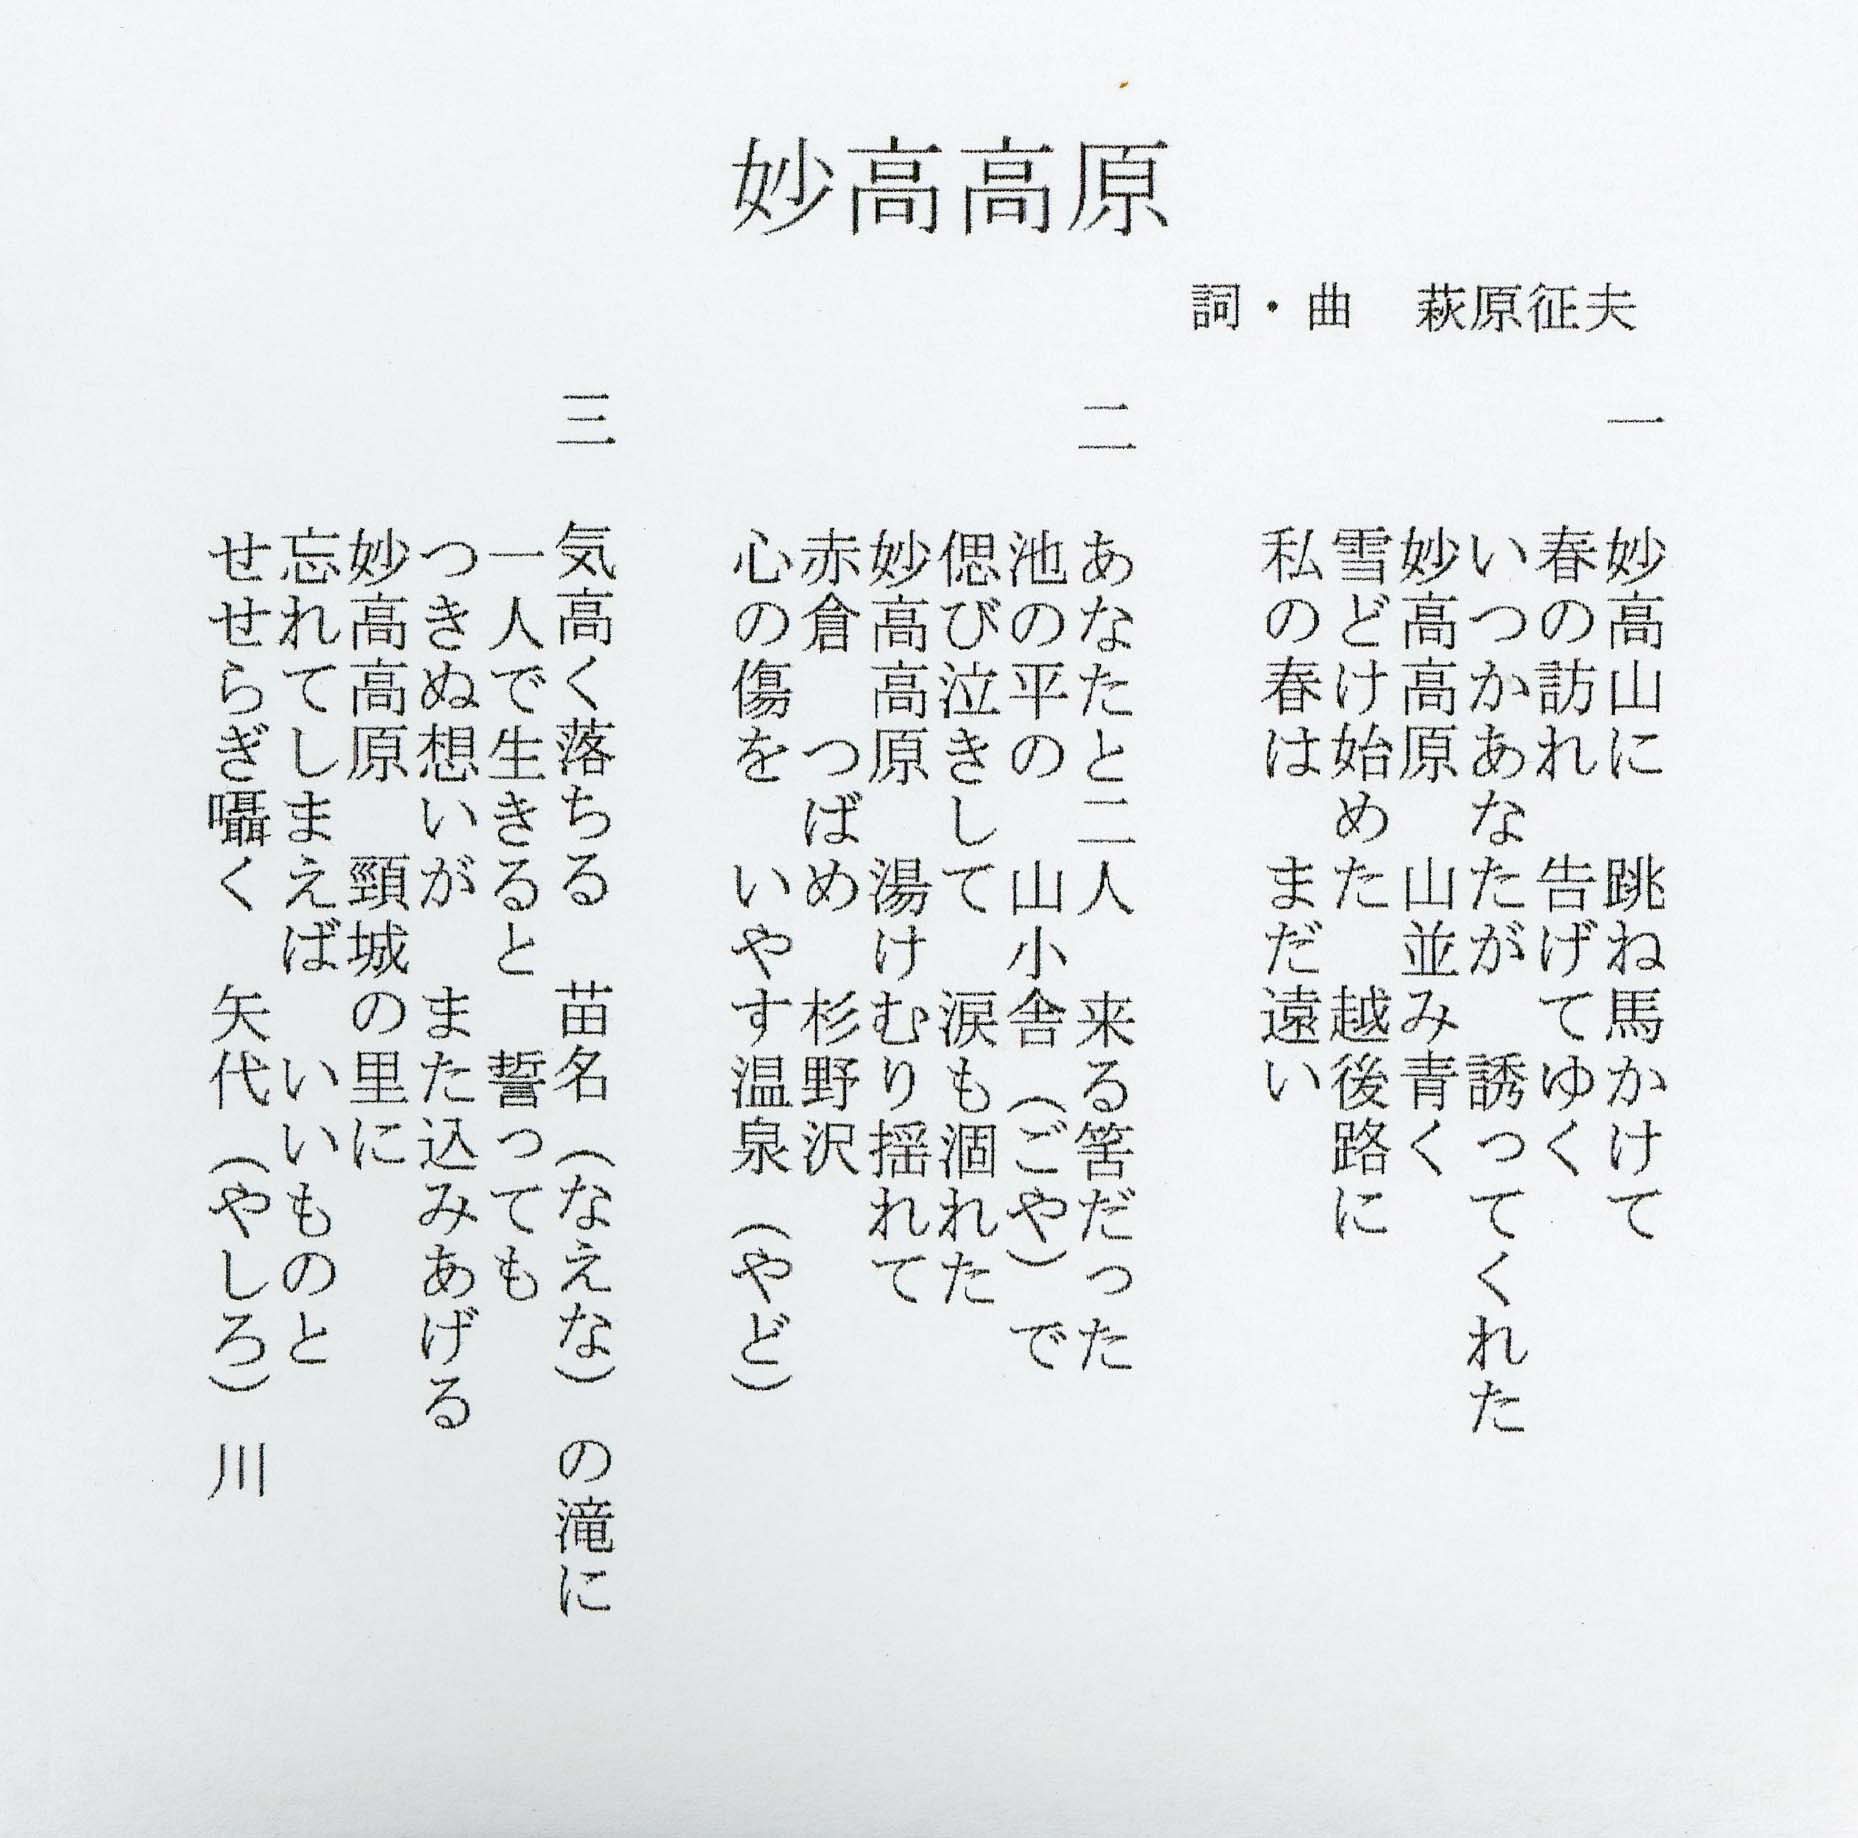 妙高高原
詞・曲　萩原征夫
一　妙高山に　跳ね馬かけて
春の訪れ　告げてゆく
いつかあなたが　誘ってくれた
妙高高原　山並み青く
雪どけ始めた　越後路に
私の春は　まだ遠い
二　あなたと二人　来る筈だった
池の平の　山小舎（ごや）で
偲び泣きして　涙も涸れた
妙高高原　湯けむり揺れて
赤倉　つばめ　杉野沢
心の傷を　いやす温泉（やど）
三　気高く落ちる　苗名（なえな）の滝に
一人で生きると　誓っても
つきぬ想いが　また込みあげる
妙高高原　頸城の里に
忘れてしまえば　いいものと
せせらぎ囁く　矢代（やしろ）川